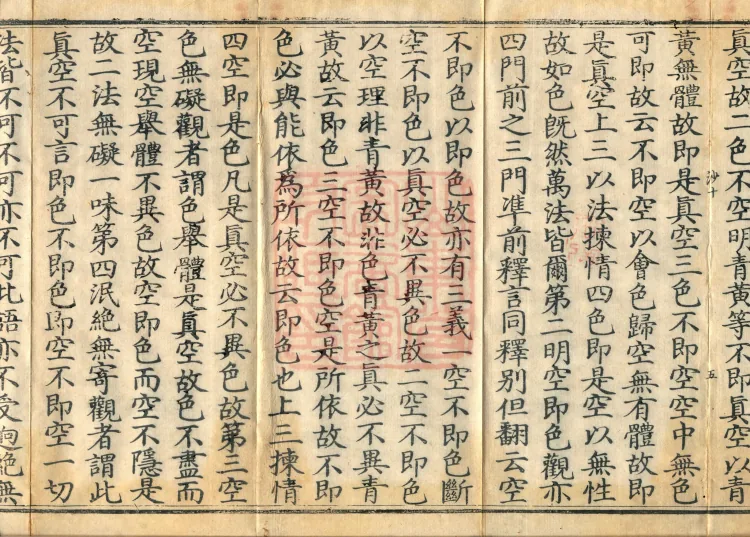 眞空故二色不空明青黃等不即眞空以青
沙十 五
黃無體故即是眞空三色不即空空中無色
可即故云不即空以會色歸空無有體故即
是眞空上三以法揀情四色即是空以無性
故如色既然萬法皆爾第二明空即色觀亦
四門前之三門準前釋言同釋別但翻云空
不即色以即色故亦有三義一空不即色斷
空不即色以眞空必不異色故二空不即色
以空理非青黃故非色青黃之眞必不異青
黃故云即色三空不即色空是所依故不即
色必與能依為所依故云即色也上三揀情
四空即是色凡是眞空必不異色故第三空
色無礙觀者謂色舉體是眞空故色不盡而
空現空舉體不異色故空即色而空不隱是
故二法無礙一味第四泯絕無寄觀者謂此
眞空不可言即色不即色即空不即空一切
法皆不可不可亦不可此語亦不受逈絕無